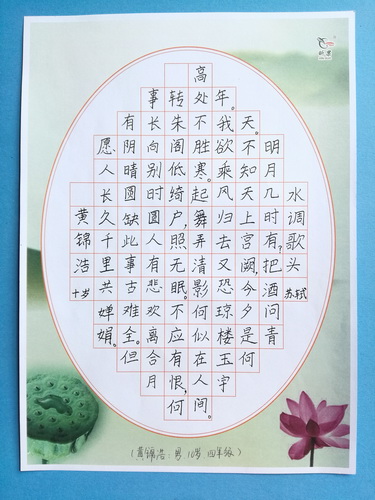 水调歌头
苏轼
明月几时有,把酒问青
天。不知天上宫阙,今夕是何
年。我欲乘风归去又恐琼楼玉宇
高处不胜寒。起舞弄清影何似在人间。
转朱阁低绮户,照无眠。不应有恨,何
事长向别时圆人有悲欢离合月
有阴晴圆缺此事古难全。但
愿人长久千里共婵娟。
黄锦浩
十岁
(黄锦浩:男 10岁 四年级)